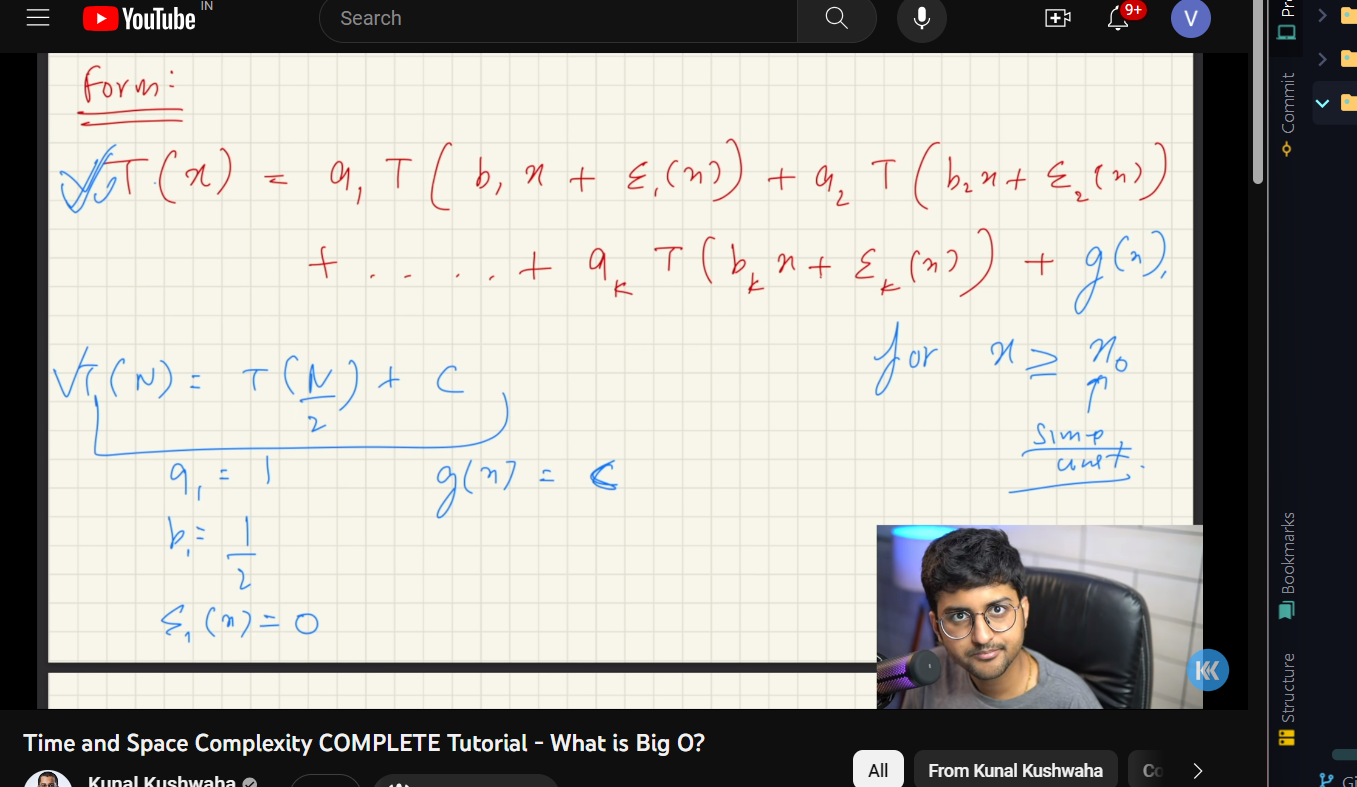 IN
YouTube
Search
9+
V
Form:
T(x) = a₁ T(b₁x + ε₁(n)) + a₂ T(b₂x + ε₂(n))
+ ..... + aₖ T(bₖx + εₖ(n)) + g(n),
for x ≥ x₀
T(N) = T(N/2) + C
simp,
const.
a₁ = 1
g(n) = C
b₁ = 1/2
ε₁(n) = 0
Time and Space Complexity COMPLETE Tutorial - What is Big O?
Kunal Kushwaha
All
From Kunal Kushwaha
Co
Pr
Commit
Bookmarks
Structure
Gi